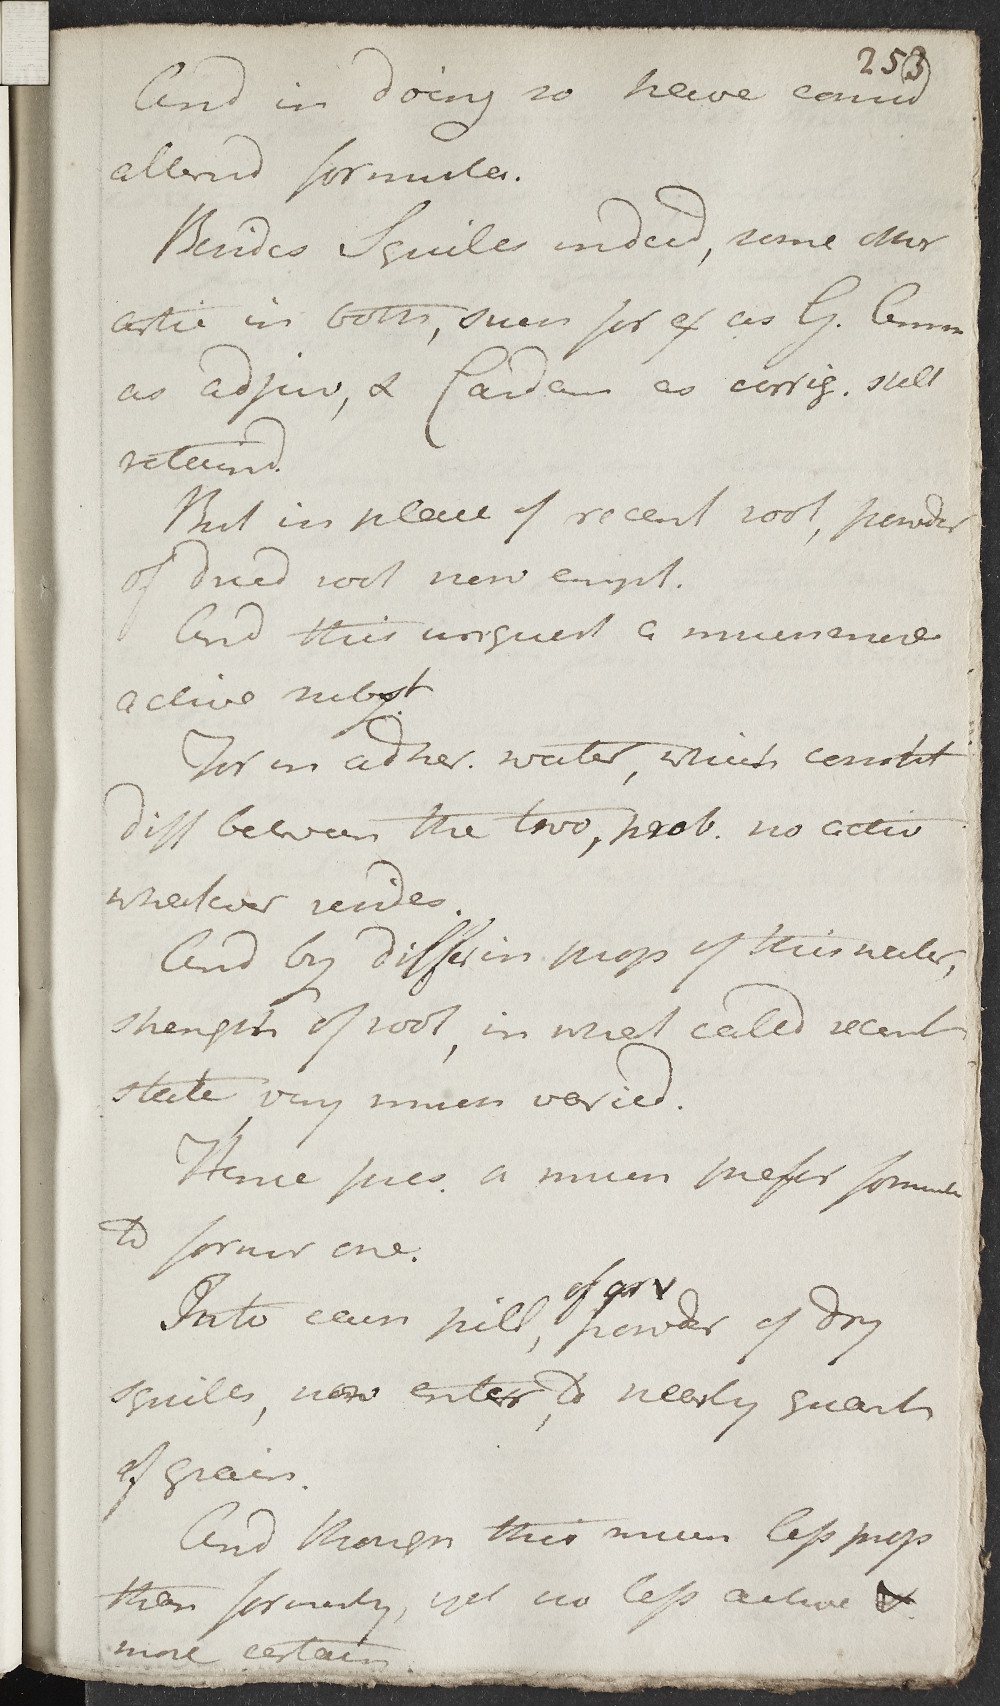 253
And in doing so have consid
alterd formula.
Besides Squiles indeed, some other
artic in both, such for ex as G. Amm
as adjuv, & Cardam as corrig. still
retaind.
But in place of recent root, powder
of dried root now empl.
And this unquest a much more
active subst.
For in adher. water, which constit
diff between the two, prob. no activ
whatever resides.
And by differ in prop of this water,
strength of root, in what called recent
state, very much varied.
Hence pres. a much prefer formula
to former one.
of gr v
Into each pill, powder of dry
squiles, now enters, to nearly quart
of grain.
And though this much less prop
than formerly, yet no less active &
more certain.